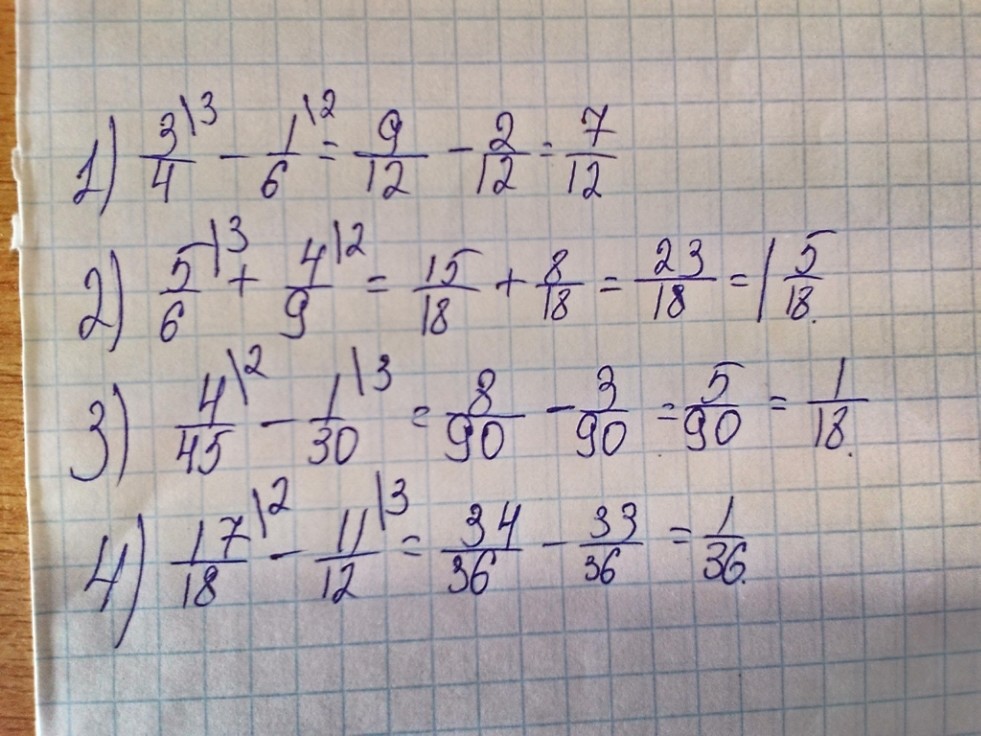 1) 3/4\3 - 1/6\2 = 9/12 - 2/12 = 7/12
2) 5/6\3 + 4/9\2 = 15/18 + 8/18 = 23/18 = 1 5/18.
3) 4/45\2 - 1/30\3 = 8/90 - 3/90 = 5/90 = 1/18.
4) 17/18\2 - 11/12\3 = 34/36 - 33/36 = 1/36.